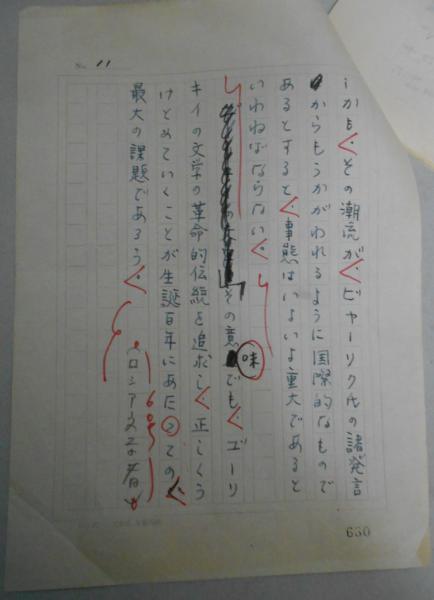 No. 11
しかも、その潮流が、ビャーリク氏の諸発言
からもうかがわれるように国際的なもので
あるとすると、事態はいよいよ重大であると
いわねばならない。
その意味でも、ゴーリ
キイの文学の革命的伝統を追求し、正しくう
けとめていくことが生誕百年にあたっての、
最大の課題であろう。